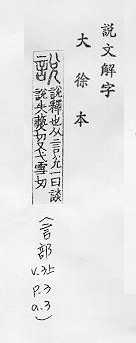 說文解字
大徐本
說 說釋也从言兌一曰談
說失爇切又弋雪切
(言部
V.3上
P.3
a.3)